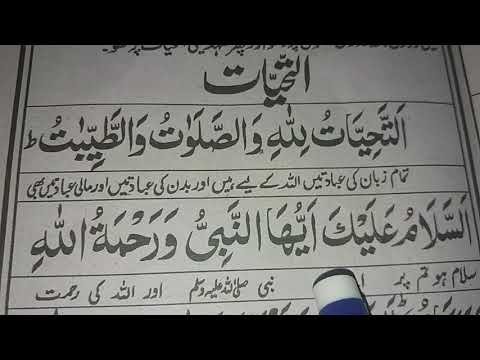 التحیّات
اَلتَّحِيَّاتُ لِلّٰهِ وَالصَّلَوٰتُ وَالطَّيِّبٰتُ ؕ
تمام زبان کی عبادتیں اللہ کے لیے ہیں اور بدن کی عبادتیں اور مالی عبادتیں بھی
اَلسَّلَامُ عَلَيْكَ اَيُّهَا النَّبِىُّ وَرَحْمَةُ اللّٰهِ
سلام ہو تم پر نبی صلی اللہ علیہ وسلم اور اللہ کی رحمت